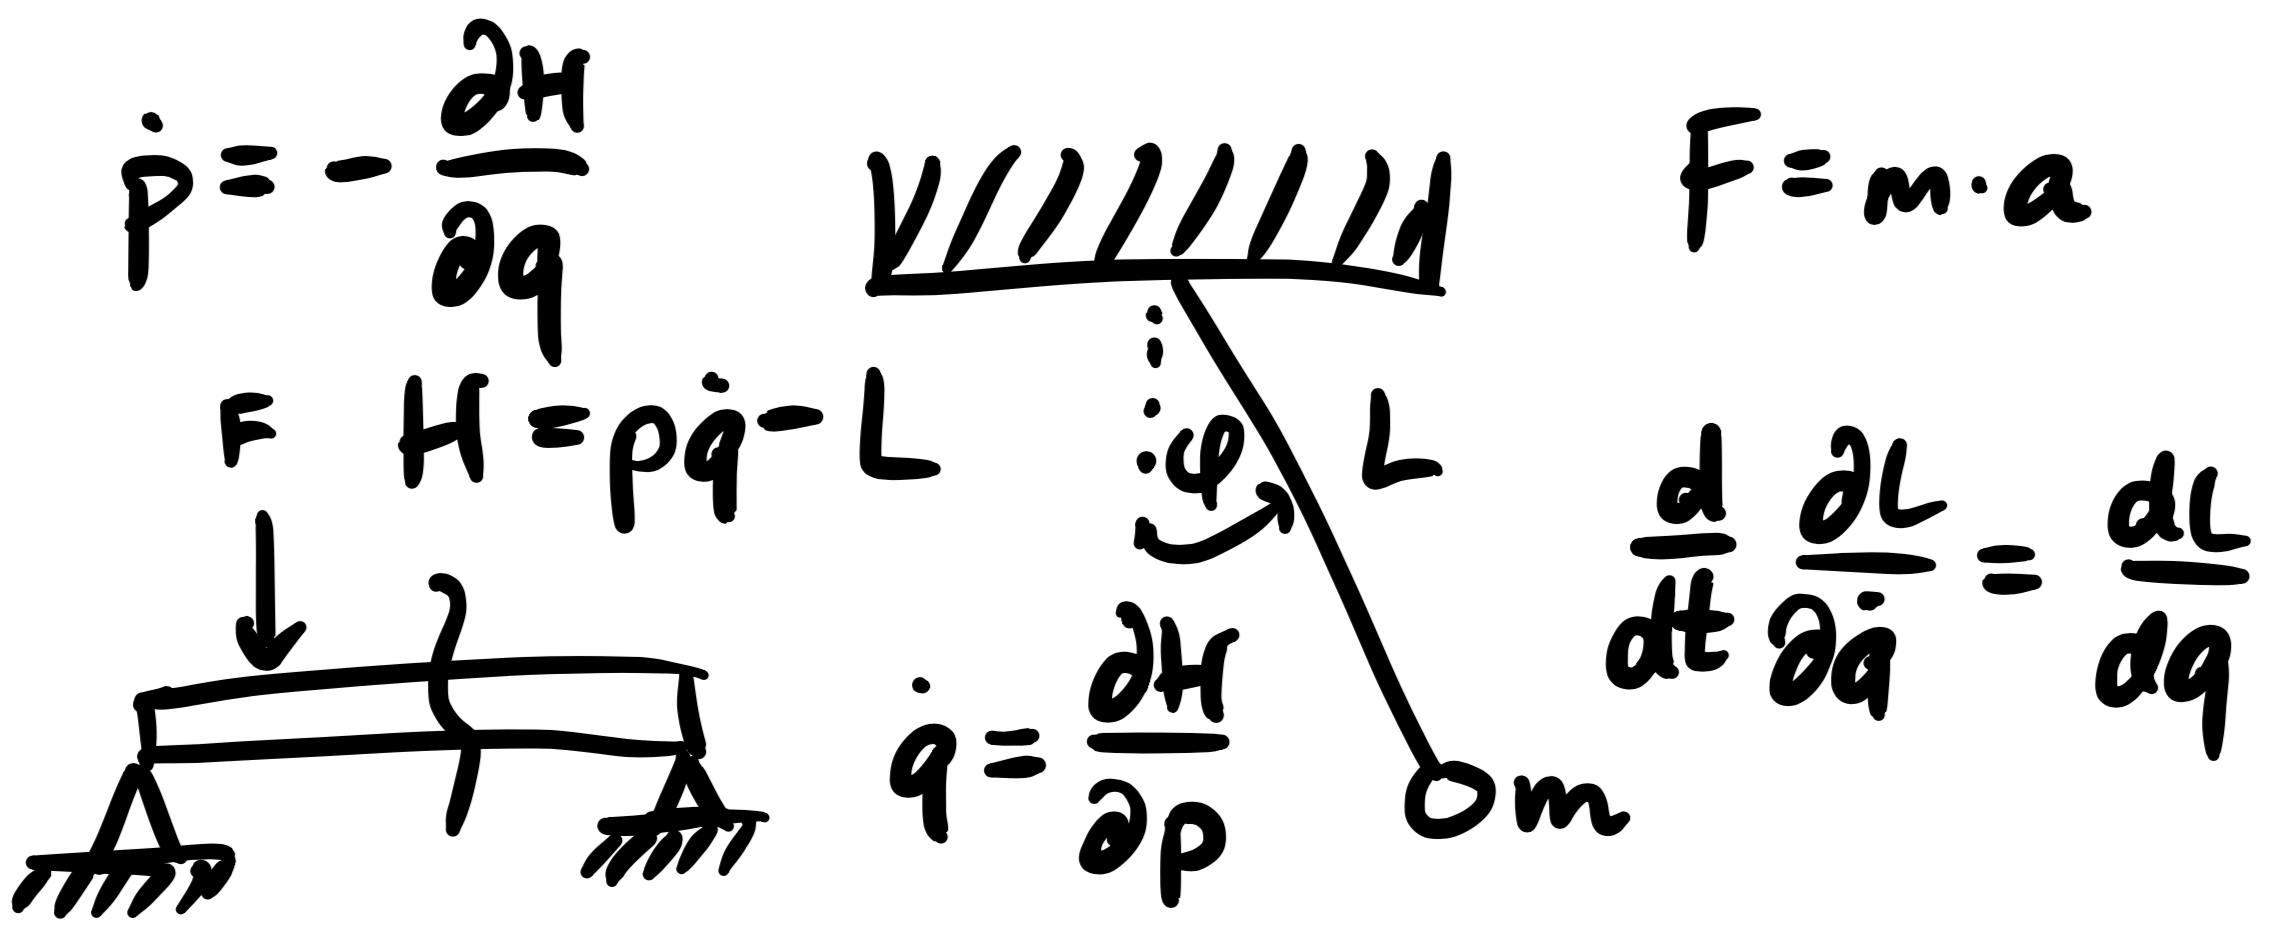 ṗ = - ∂H/∂q
F = m · a
F
H = pq̇ - L
φ
L
d/dt ∂L/∂q̇ = dL/dq
q̇ = ∂H/∂p
m